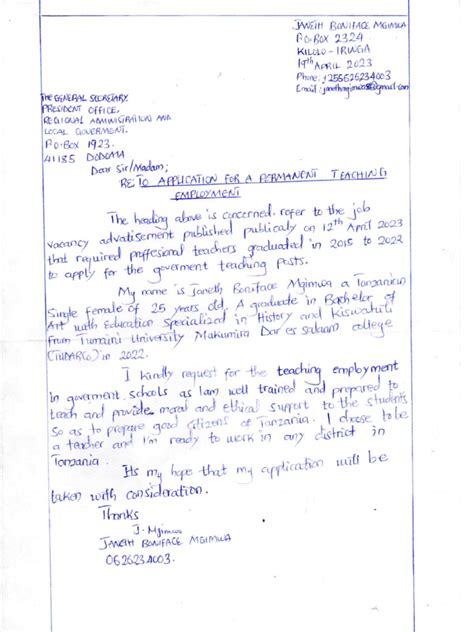 JANETH BONIFACE MGIMWA
P.O.BOX 2324
KILOLO - IRINGA
19th APRIL 2023
Phone: +255626234003
Email:
THE GENERAL SECRETARY.
PRESIDENT OFFICE,
REGIONAL ADMINISTRATION AND
LOCAL GOVERMENT.
P.O.BOX 1923.
41185 DODOMA
Dear Sir/Madam;
RE: TO APPLICATION FOR A PERMANENT TEACHING
EMPLOYMENT
The heading above is concerned. refer to the job
vacancy advatisement published publicaly on 12th April 2023
that required proffesional teachers graduated in 2015 to 2022
to apply for the goverment teaching posts.
My name is Janeth Boniface Mgimwa a Tanzanian
Single female of 25 years old. A graduate in Bachelor of
Art with Education Specialized in History and Kiswahili
from Tumaini University Makumira Dar es salaam college
(TUDARCo) in 2022.
I kindly request for the teaching employment
in goverment schools as Iam well trained and prepared to
teach and provide moral and ethical support to the students
so as to prepare good citizens of Tanzania. I choose to be
a teacher and I'm ready to work in any district in
Tanzania.
Its my hope that my application will be
taken with consideration.
Thanks
J. Mgimwa
JANETH BONIFACE MGIMWA
0626234003.